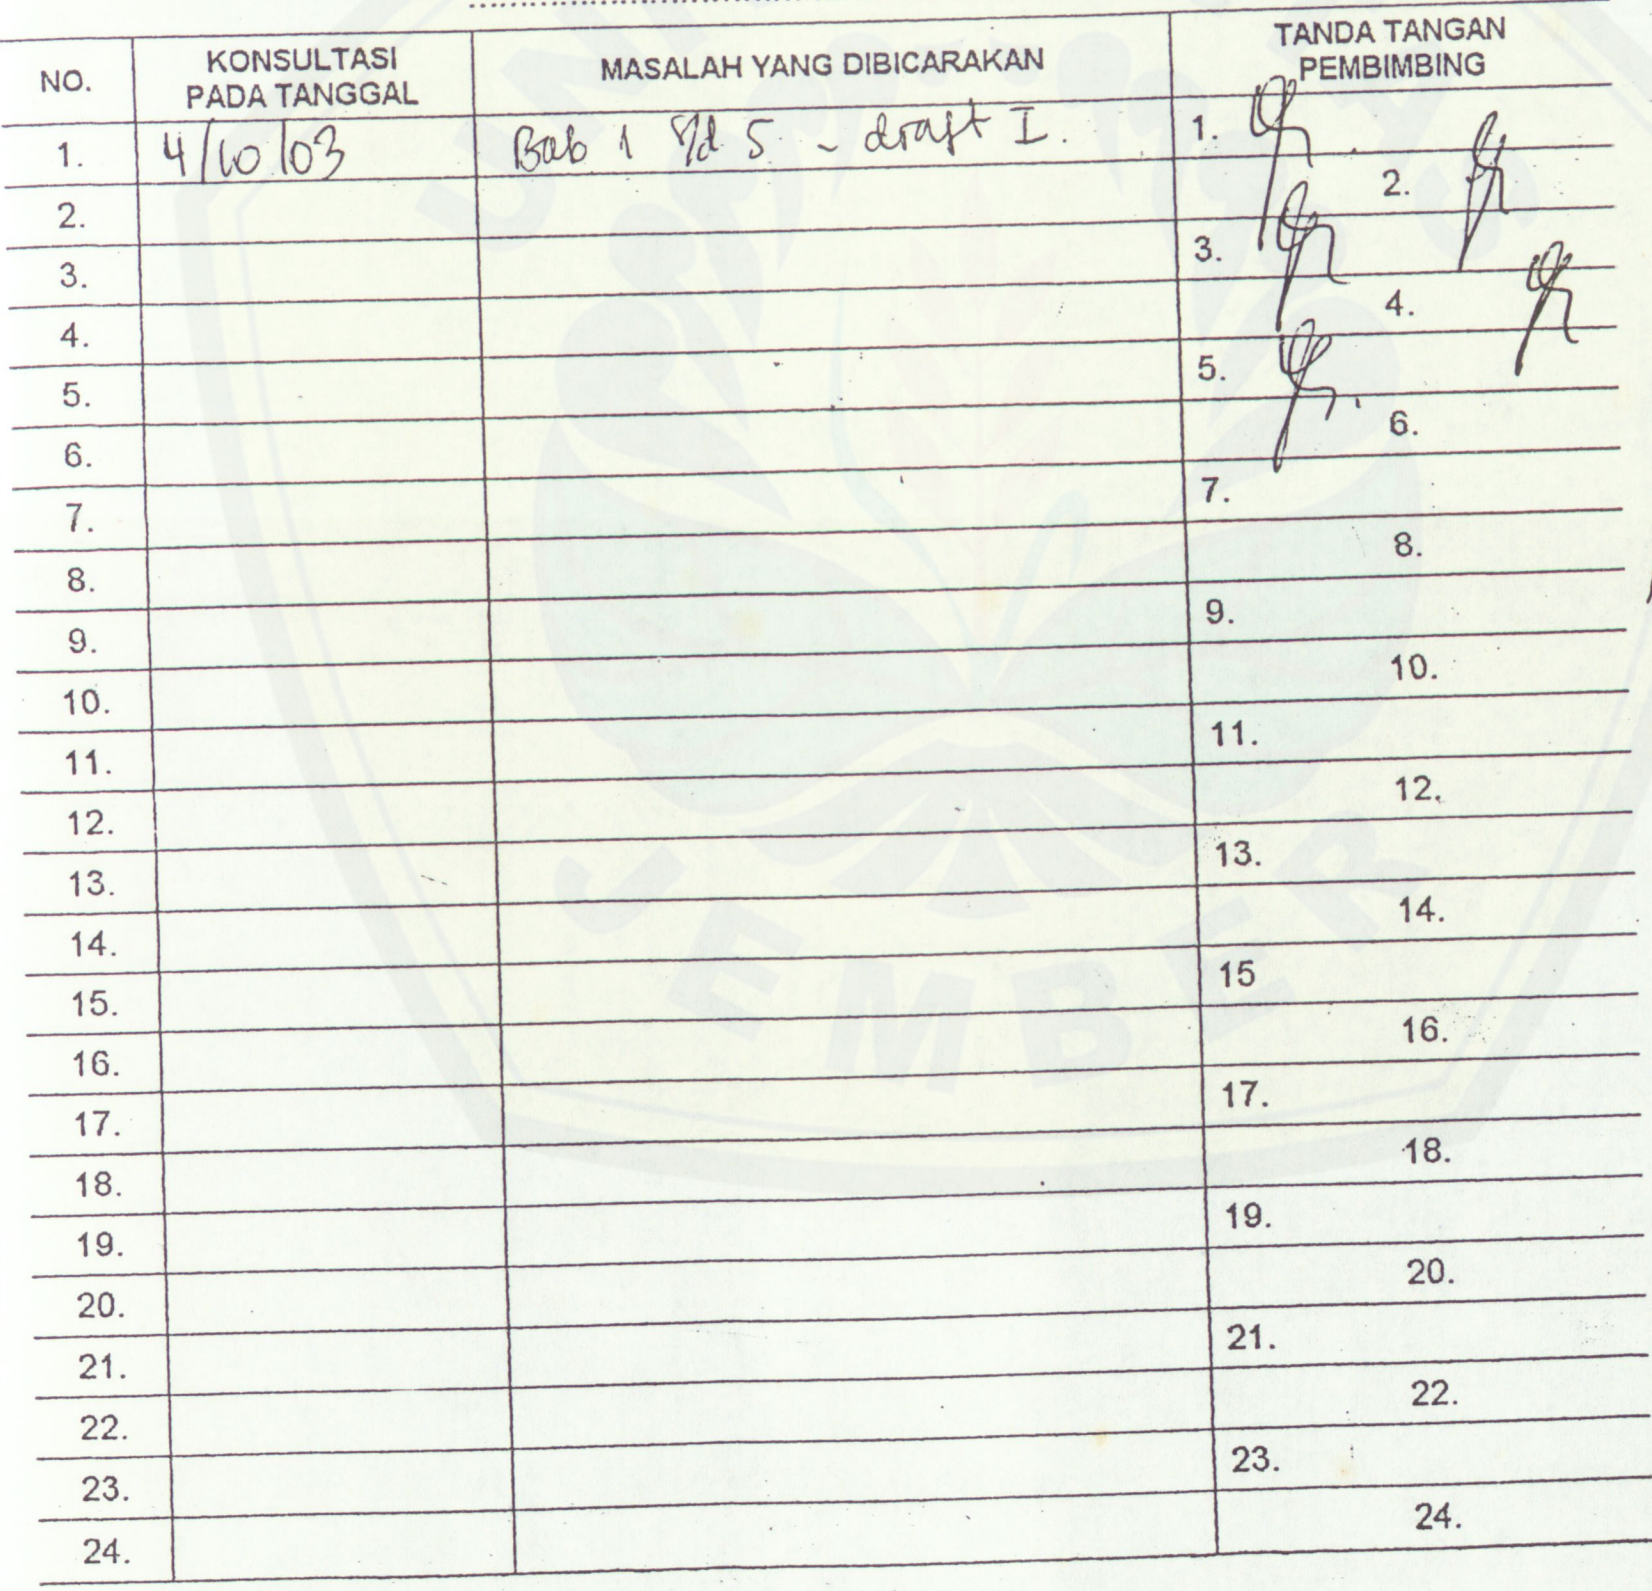 NO.
KONSULTASI
PADA TANGGAL
MASALAH YANG DIBICARAKAN
TANDA TANGAN
PEMBIMBING
1. 4/10/03 Bab 1 s/d 5 - draft I. 1.
2. 2.
3. 3.
4. 4.
5. 5.
6. 6.
7. 7.
8. 8.
9. 9.
10. 10.
11. 11.
12. 12.
13. 13.
14. 14.
15. 15
16. 16.
17. 17.
18. 18.
19. 19.
20. 20.
21. 21.
22. 22.
23. 23.
24. 24.
JEMBER